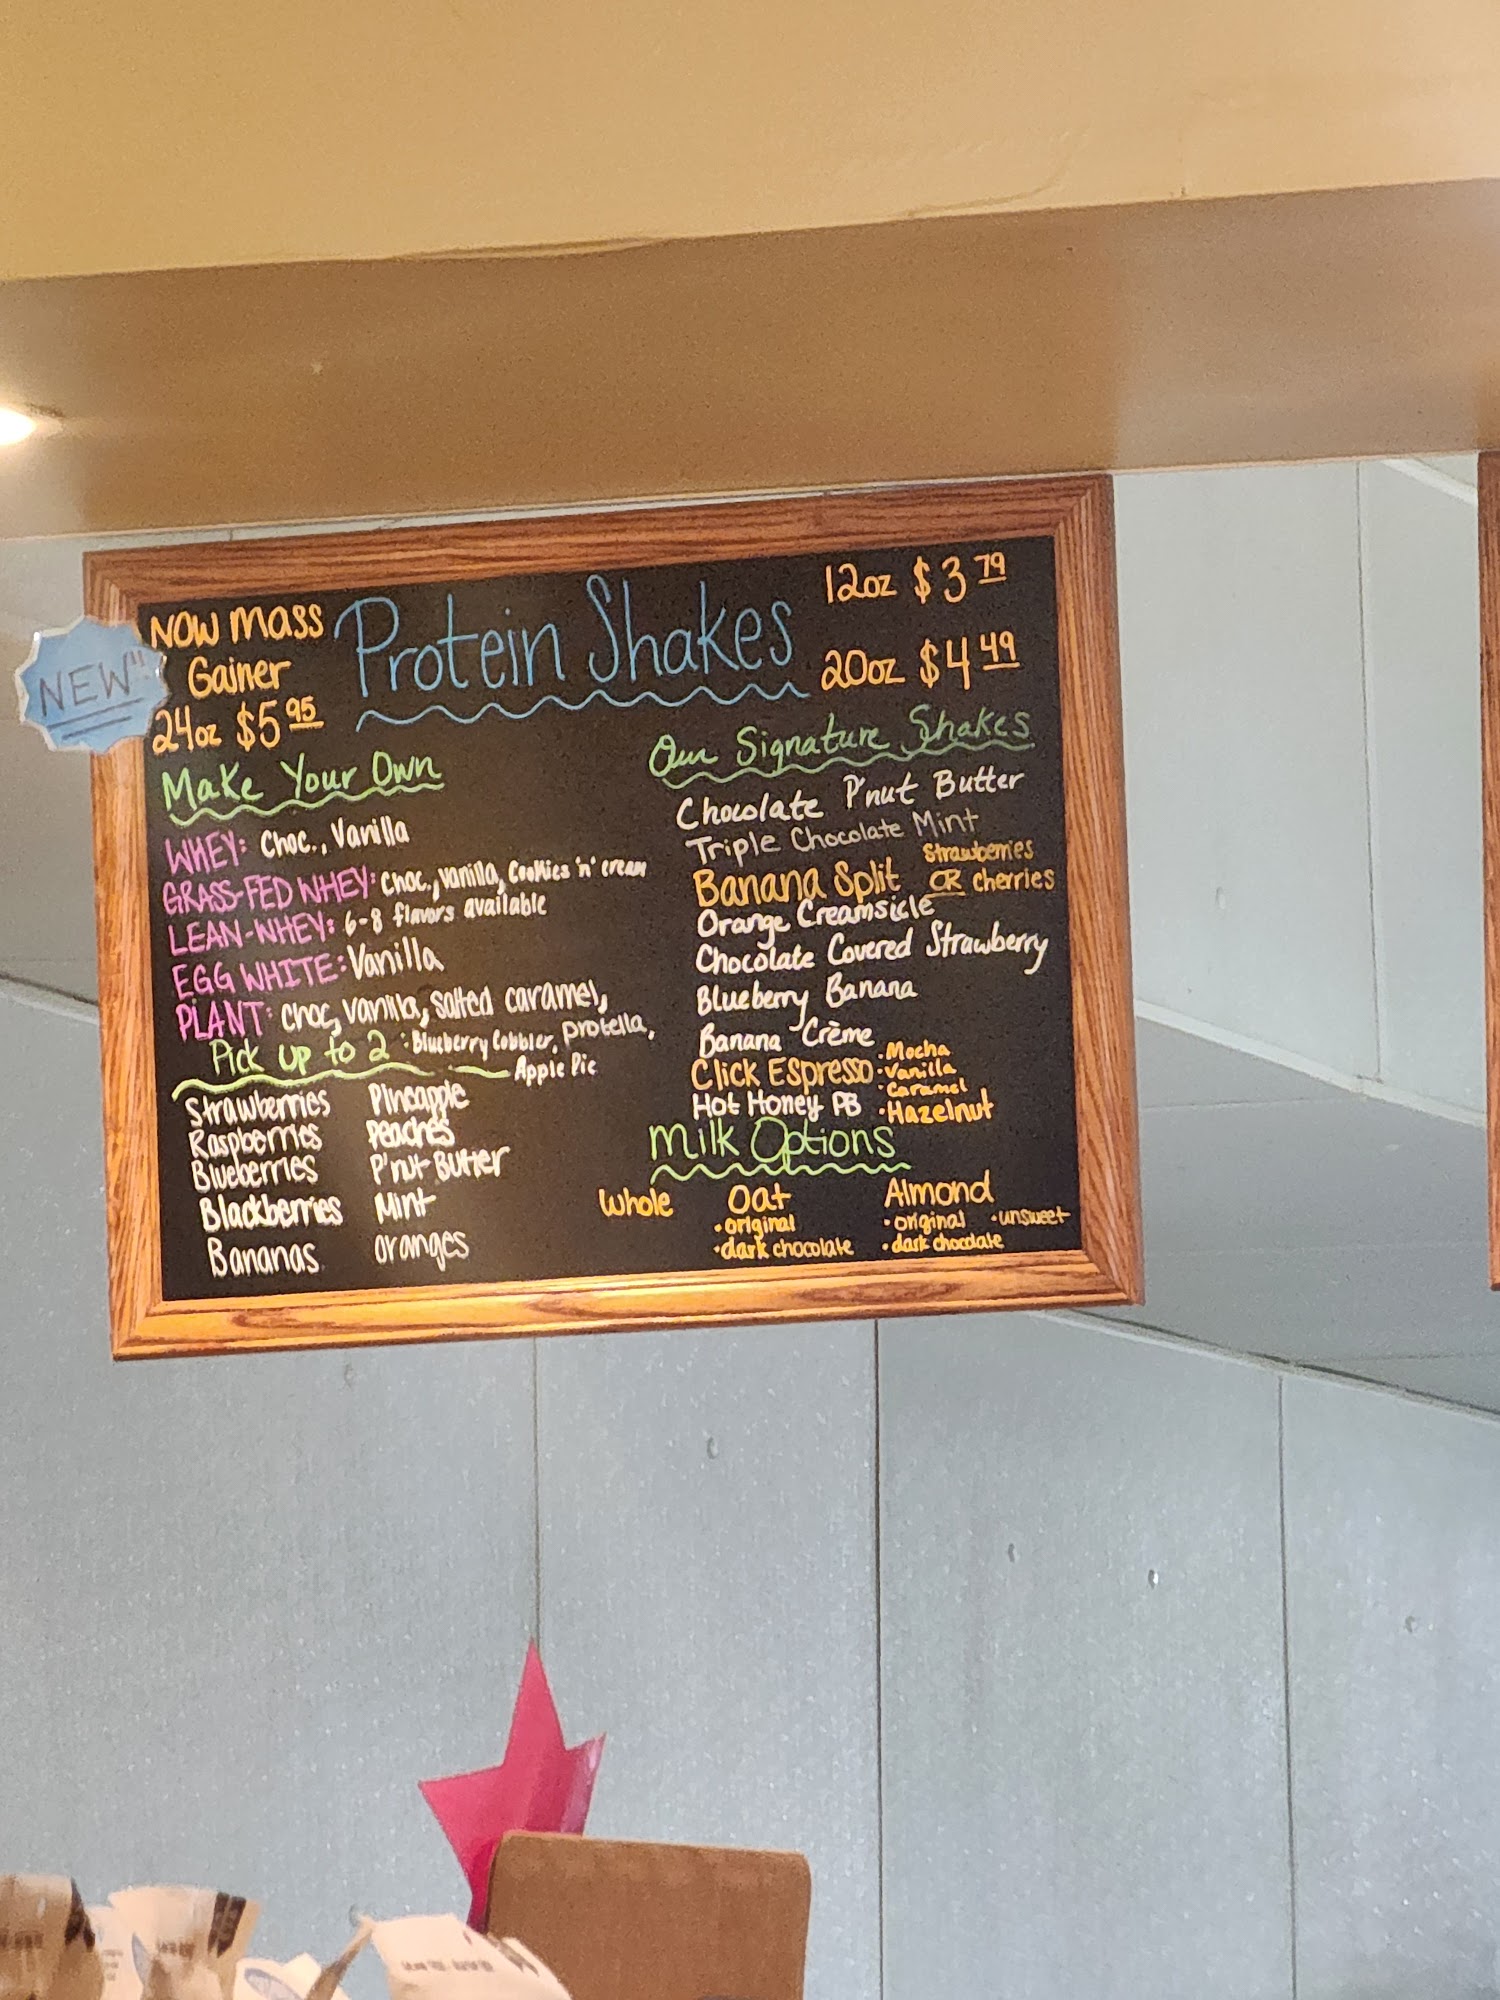 NEW"
NOW Mass
Gainer
24oz $5 95
Protein Shakes
12oz $3 79
20oz $4 49
Make Your Own
WHEY: Choc., Vanilla
GRASS-FED WHEY: Choc., Vanilla, Cookies 'n' cream
LEAN-WHEY: 6-8 flavors available
EGG WHITE: Vanilla
PLANT: Choc, Vanilla, Salted Caramel,
: Blueberry Cobbler, Protella,
Apple Pie
Pick up to 2
Strawberries
Raspberries
Blueberries
Blackberries
Bananas
Pineapple
Peaches
P'nut Butter
Mint
Oranges
Our Signature Shakes
Chocolate P'nut Butter
Triple Chocolate Mint
Banana Split Strawberries
OR Cherries
Orange Creamsicle
Chocolate Covered Strawberry
Blueberry Banana
Banana Crème
Click Espresso •Mocha
•Vanilla
•Caramel
•Hazelnut
Hot Honey PB
Milk Options
Whole
Oat
•original
•dark chocolate
Almond
•original •unsweet
•dark chocolate